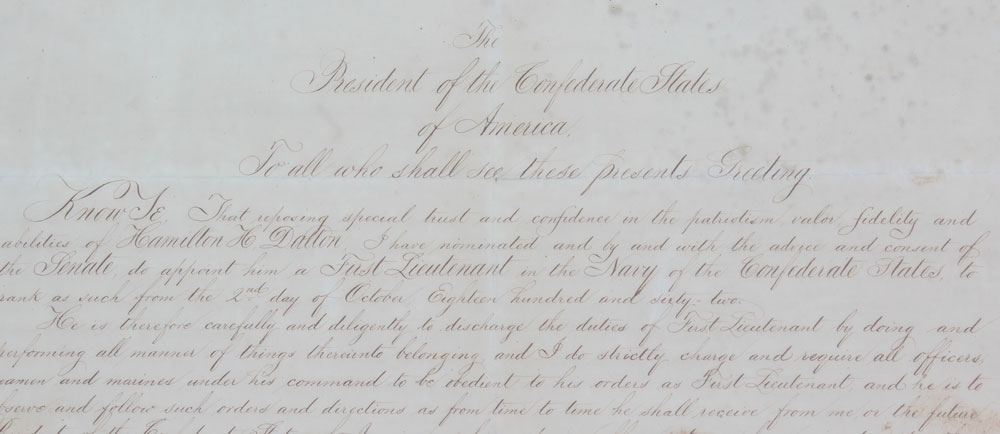 The
President of the Confederate States
of America.
To all who shall see these presents Greeting.
Know Ye, That reposing special trust and confidence in the patriotism, valor, fidelity and
abilities of Hamilton H. Dalton, I have nominated and by and with the advice and consent of
the Senate, do appoint him a First Lieutenant in the Navy of the Confederate States, to
rank as such from the 2nd day of October, Eighteen hundred and sixty-two.
He is therefore carefully and diligently to discharge the duties of First Lieutenant by doing and
performing all manner of things thereunto belonging, and I do strictly charge and require all officers,
seamen and marines under his command to be obedient to his orders as First Lieutenant, and he is to
observe and follow such orders and directions as from time to time he shall receive from me, or the future